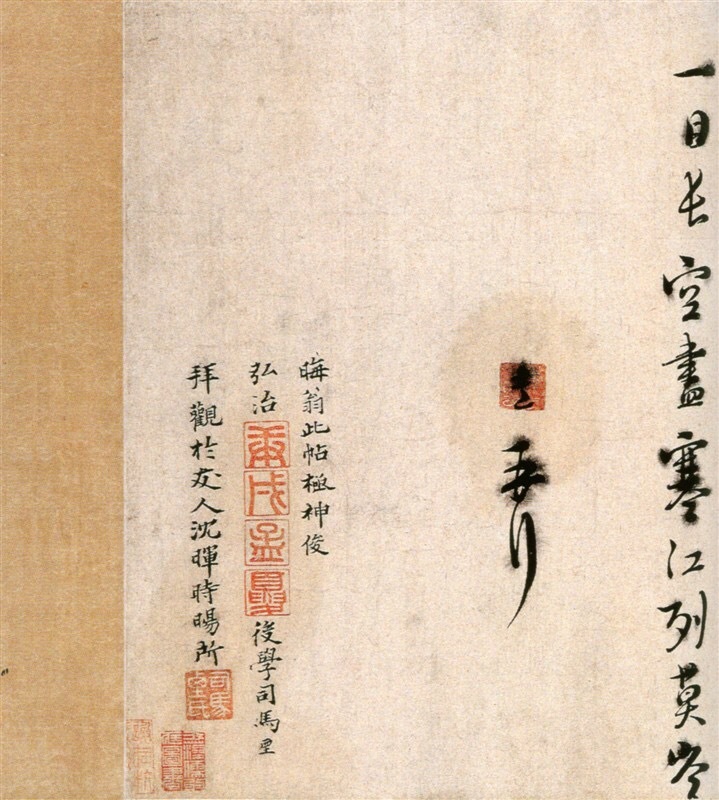 一日長空盡寒江列莫岑
晦翁此帖極神俊
弘治庚戌孟夏後學司馬垔
拜觀於友人沈暉時暘所